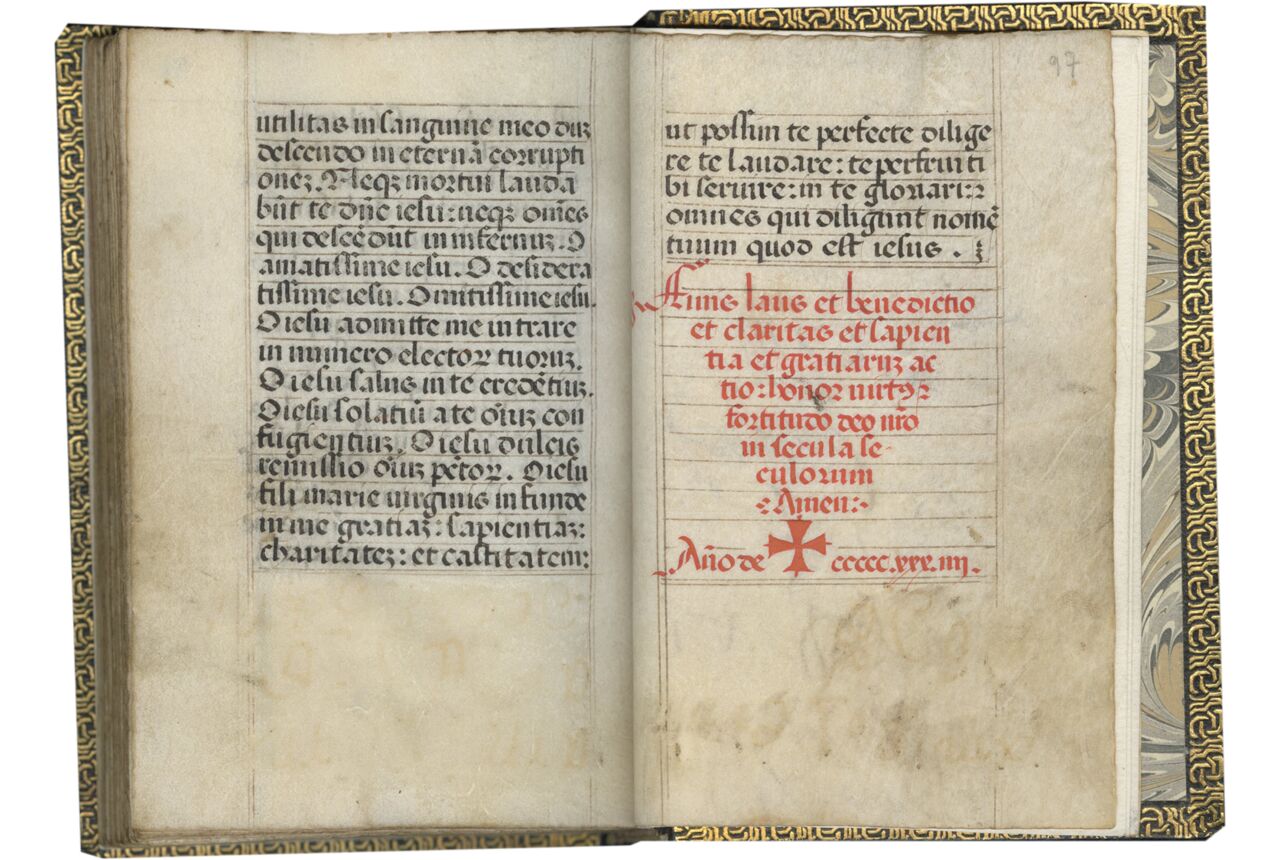 utilitas in sanguine meo duȝ
descendo in eternā corrupti
oneȝ. Neqȝ mortui lauda
būt te dn̄e iesu: neqȝ om̄es
qui descēdūt in infernuȝ. O
amatissime iesu. O desidera
tissime iesu. O mitissime iesu.
O iesu admitte me intrare
in numero electoꝝ tuoruȝ.
O iesu salus in te credētiuȝ.
O iesu solatiū ad te oīuȝ con
fugientiuȝ. O iesu dulcis
remissio oīuȝ pctoꝝ. O iesu
fili marie virginis infunde
in me gratiaȝ: sapientiaȝ:
charitateȝ: et castitatem:
97
ut possim te perfecte dilige
re te laudare: te perfrui ti
bi seruire: in te gloriari: ꝛ
omnes qui diligunt nomē
tuum quod est iesus.
Amē laus et benedictio
et claritas et sapien
tia et gratiaruȝ ac
tio: honoꝛ virtꝰ ꝛ
foꝛtitudo deo nr̄o
in secula se-
culoꝛum
Amen:
An̄o de ccccc.xxx.iiij.